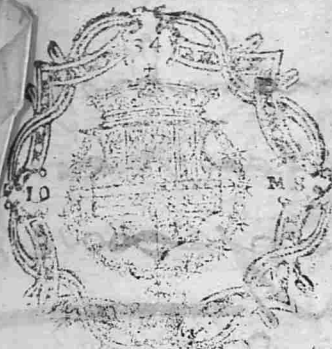 34
10 MS